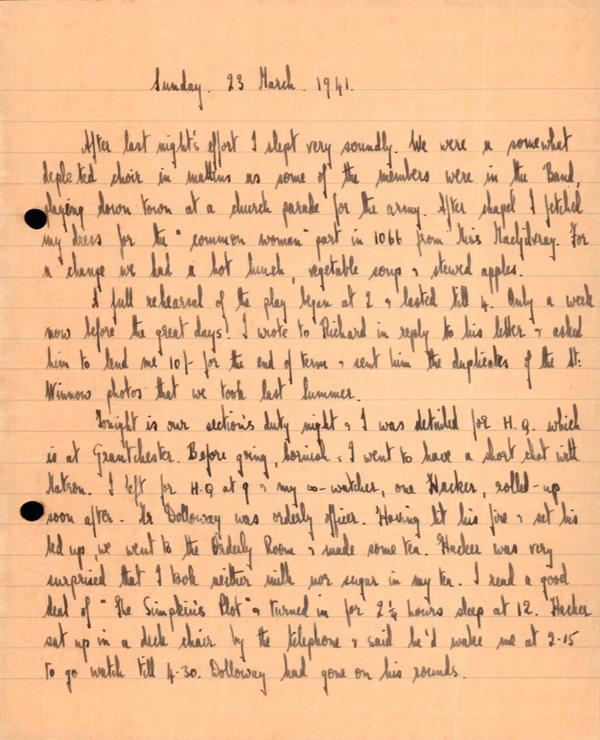 Sunday. 23 March. 1941.
After last night's effort I slept very soundly. We were a somewhat
depleted choir in mattins as some of the members were in the Band,
playing down town at a church parade for the army. After chapel I fetched
my dress for the "common woman" part in 1066 from Miss Macgilvray. For
a change we had a hot lunch, vegetable soup & stewed apples.
A full rehearsal of the play began at 2 & lasted till 4. Only a week
now before the great days. I wrote to Richard in reply to his letter & asked
him to lend me 10/- for the end of term & sent him the duplicates of the St.
Winnow photos that we took last summer.
Tonight is our section's duty night & I was detailed for H.Q. which
is at Grantchester. Before going, Cornish & I went to have a short chat with
Matron. I left for H.Q at 9 & my co-watcher, one Hacker, rolled-up
soon after. Mr Dolloway was orderly officer. Having lit his fire & set his
bed up, we went to the Orderly Room & made some tea. Hacker was very
surprised that I took neither milk nor sugar in my tea. I read a good
deal of "The Simpkins Plot" & turned in for 2 ¼ hours sleep at 12. Hacker
sat up in a deck chair by the telephone & said he'd wake me at 2.15
to go watch till 4.30. Dolloway had gone on his rounds.